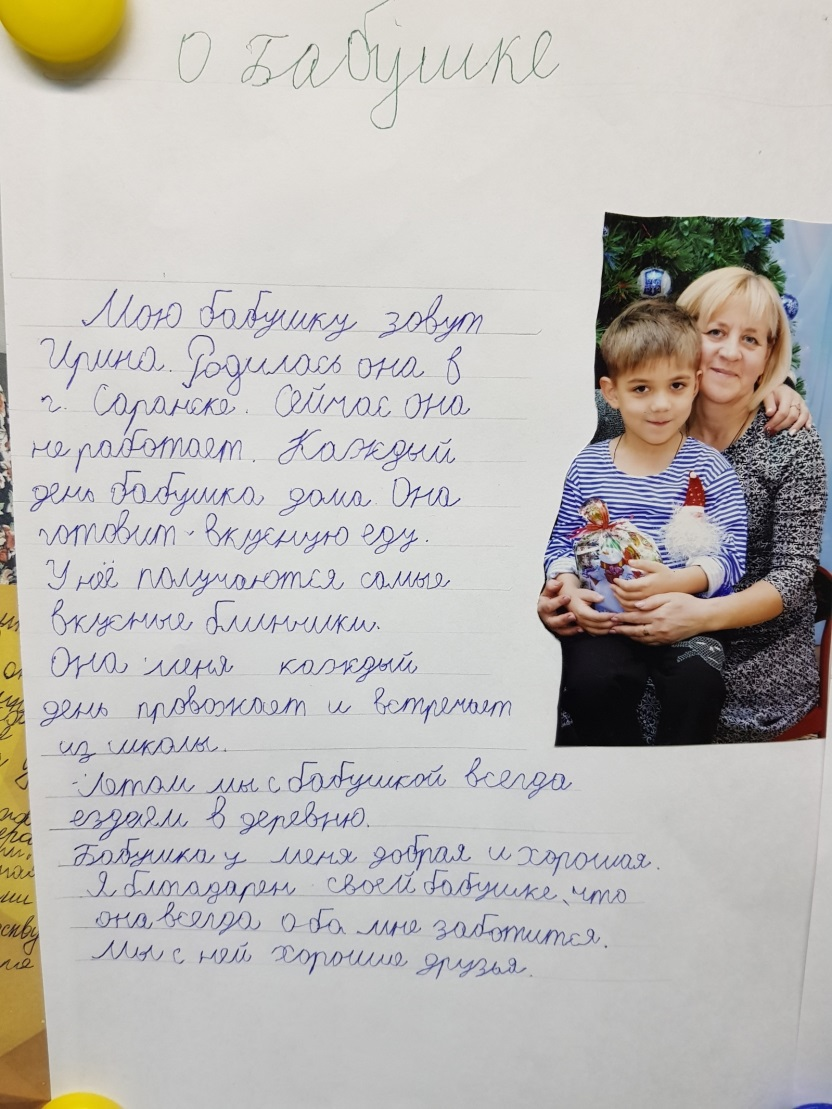 О Бабушке
Мою бабушку зовут
Ирина. Родилась она в
г. Саранске. Сейчас она
не работает. Каждый
день бабушка дома. Она
готовит вкусную еду.
У неё получаются самые
вкусные блинчики.
Она меня каждый
день провожает и встречает
из школы.
Летом мы с бабушкой всегда
ездием в деревню.
Бабушка у меня добрая и хорошая.
Я благодарен своей бабушке, что
она всегда обо мне заботится.
Мы с ней хорошие друзья.